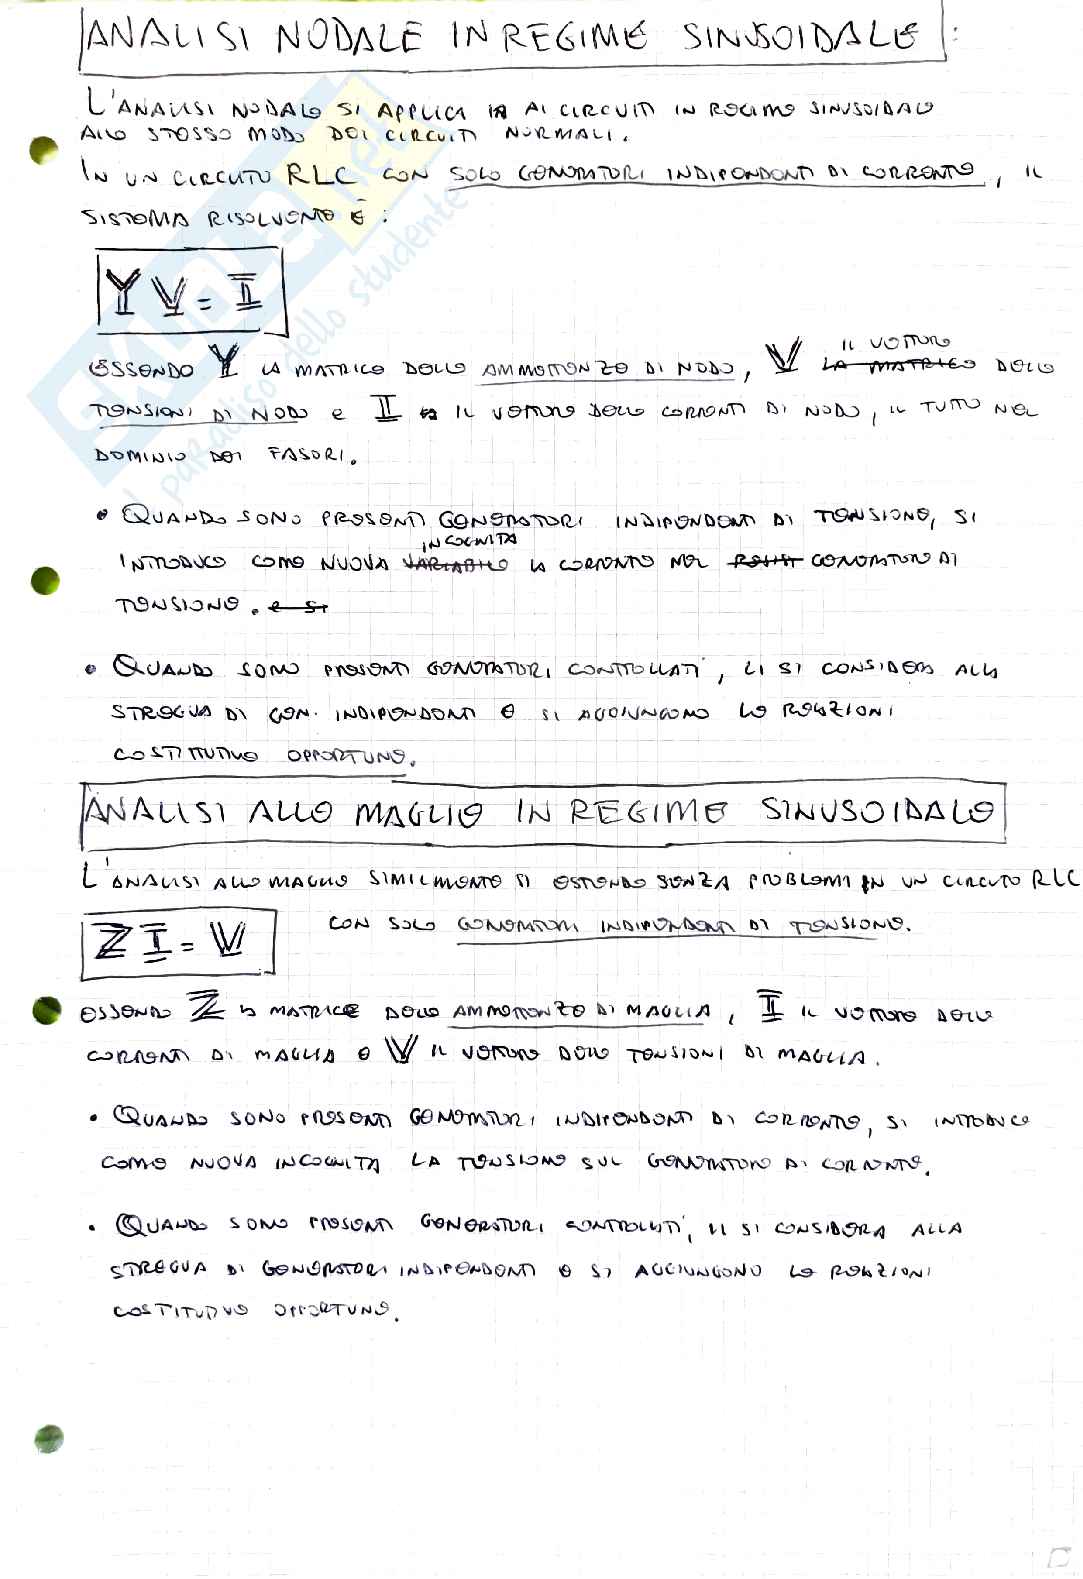 ANALISI NODALE IN REGIME SINUSOIDALE :
L'ANALISI NODALE SI APPLICA AI CIRCUITI IN REGIME SINUSOIDALE
ALLO STESSO MODO DEI CIRCUITI NORMALI.
IN UN CIRCUITO RLC CON SOLO GENERATORI INDIPENDENTI DI CORRENTE, IL
SISTEMA RISOLVENTE È :
Y V = I
ESSENDO Y LA MATRICE DELLE AMMETTENZE DI NODO, V IL VETTORE LA MATRICE DELLE
TENSIONI DI NODO E I IL VETTORE DELLE CORRENTI DI NODO, IL TUTTO NEL
DOMINIO DEI FASORI.
• QUANDO SONO PRESENTI GENERATORI INDIPENDENTI DI TENSIONE, SI
INTRODUCE COME NUOVA VARIABILE INCOGNITA LA CORRENTE NEL GENERATORE DI
TENSIONE. E SI
• QUANDO SONO PRESENTI GENERATORI CONTROLLATI, LI SI CONSIDERA ALLA
STREGUA DI GEN. INDIPENDENTI E SI AGGIUNGONO LE RELAZIONI
COSTITUTIVE OPPORTUNE.
ANALISI ALLE MAGLIE IN REGIME SINUSOIDALE
L'ANALISI ALLE MAGLIE SIMILMENTE SI ESTENDE SENZA PROBLEMI IN UN CIRCUITO RLC
CON SOLO GENERATORI INDIPENDENTI DI TENSIONE.
Z I = V
ESSENDO Z LA MATRICE DELLE AMMETTENZE DI MAGLIA, I IL VETTORE DELLE
CORRENTI DI MAGLIA E V IL VETTORE DELLE TENSIONI DI MAGLIA.
• QUANDO SONO PRESENTI GENERATORI INDIPENDENTI DI CORRENTE, SI INTRODUCE
COME NUOVA INCOGNITA LA TENSIONE SUL GENERATORE DI CORRENTE.
• QUANDO SONO PRESENTI GENERATORI CONTROLLATI, LI SI CONSIDERA ALLA
STREGUA DI GENERATORI INDIPENDENTI E SI AGGIUNGONO LE RELAZIONI
COSTITUTIVE OPPORTUNE.
SKUOLA.net
il paradiso dello studente